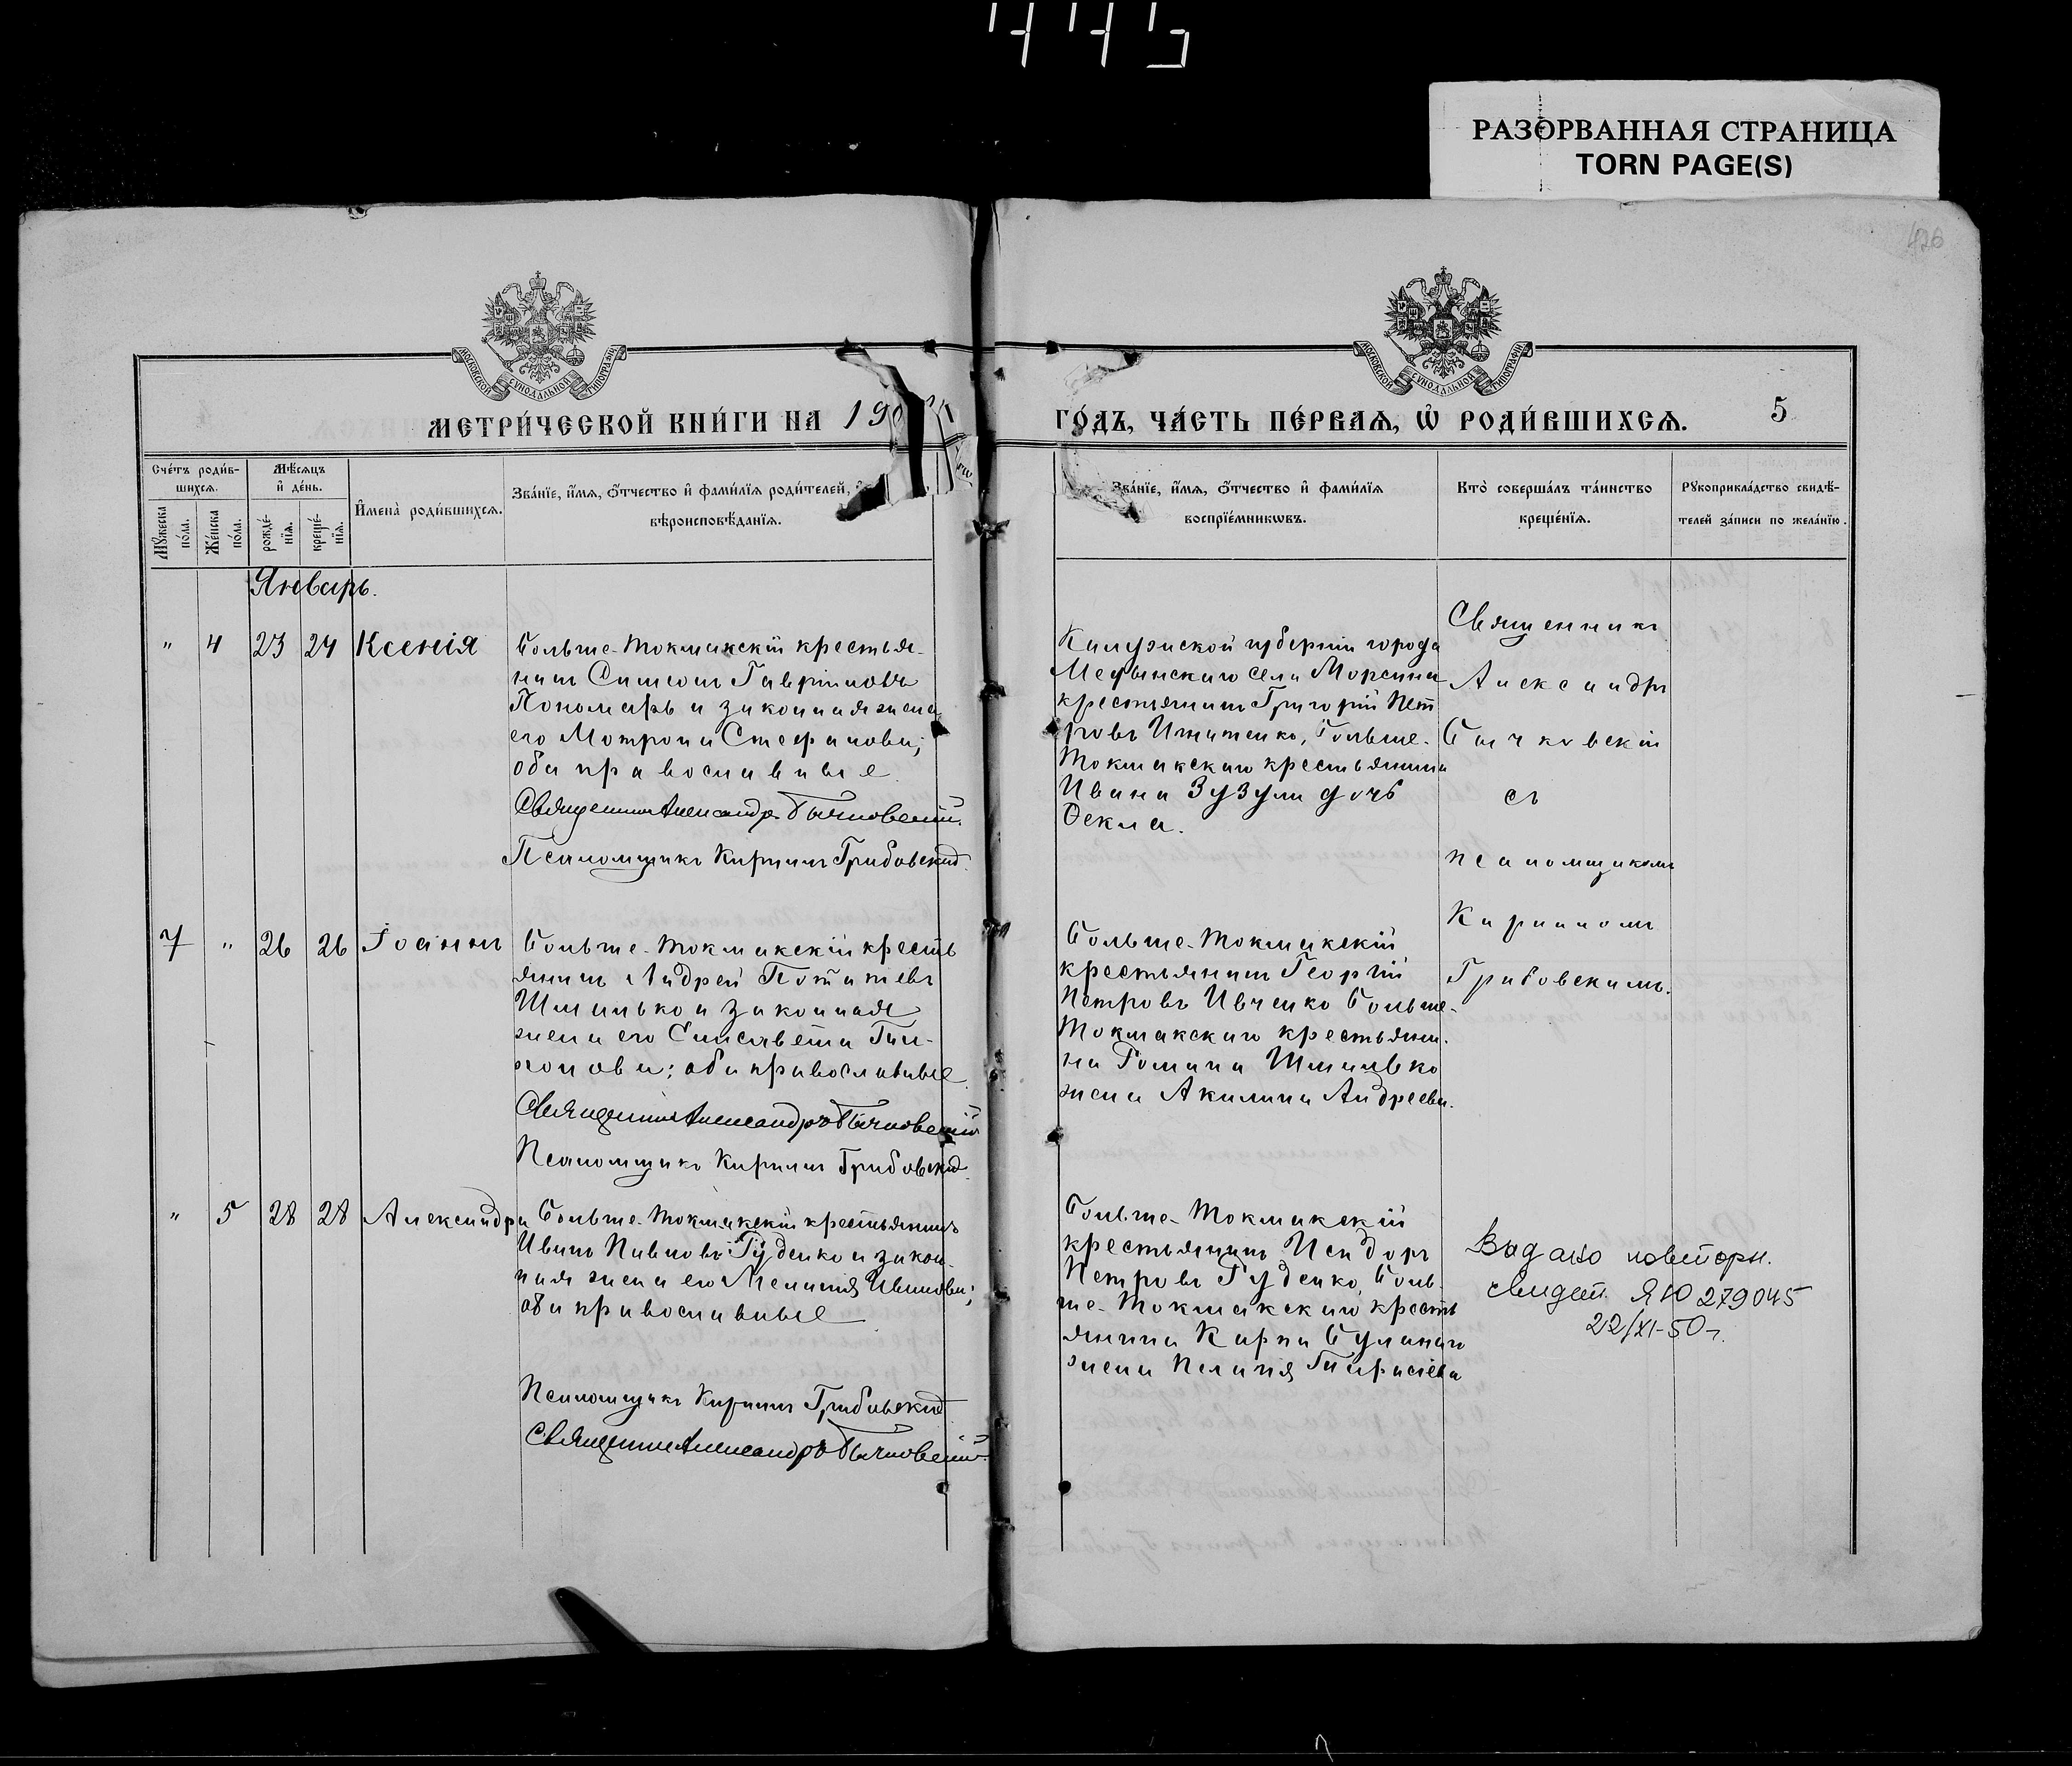 РАЗОРВАННАЯ СТРАНИЦА
TORN PAGE(S)
МЕТРИ́ЧЕСКОЙ КНИ́ГИ НА 190
ГО́ДЪ, ЧА́СТЬ ПЕ́РВАѦ, Ѡ҆ РОДИ́ВШИХСѦ. 5
Сче́тъ роди́в-
шихсѧ.
Мѣ́сѧцъ
и҆ де́нь.
Мꙋ́жеска
по́ла.
Же́нска
по́ла.
рожде́-
нїѧ.
креще́-
нїѧ.
И҆мена̀ роди́вшихсѧ.
Зва́нїе, и҆́мѧ, ѻ҆́тчество и҆ фами́лїѧ роди́телей,
вѣроисповѣ́данїѧ.
Зва́нїе, и҆́мѧ, ѻ҆́тчество и҆ фами́лїѧ
воспрїе́мникѡвъ.
Кто̀ соверша́лъ та́инство
креще́нїѧ.
Рꙋкоприкла́дство свидѣ́-
телей за́писи по жела́нїю.
Январь.
" 4 23 24 Ксенія
Больше-Токмакскій крестья-
нинъ Симеонъ Гавриловъ
Пономарь и законная жена
его Матрона Стефанова;
оба православные
Священникъ Александръ Бычковскій.
Псаломщикъ Кириллъ Грибовскій.
Калужской губерніи города
Медынскаго села Морсина
крестьянинъ Григорій Пет
ровъ Больше-
Токмакскаго крестьянина
Ивана Зузули дочь
Ѳекла.
Священникъ
Александръ
Бычковскій
съ
псаломщикомъ
Кирилломъ
Грибовскимъ.
7 " 26 26 Іоаннъ
Больше-Токмакскій кресть
янинъ Андрей Потапіевъ
Шмилько и законная
жена его Елисавета Ти-
хонова; оба православные
Священникъ Александръ Бычковскій
Псаломщикъ Кириллъ Грибовскій.
Больше-Токмакскій
крестьянинъ Георгій
Петровъ Ивченко Больше-
Токмакскаго крестьяни-
на Романа Шмилько
жена Акилина Андреева.
" 5 28 28 Александра
Больше-Токмакскій крестьянинъ
Иванъ Павловъ Гуденко и закон-
ная жена его Меланія Иванова;
оба православные
Псаломщикъ Кириллъ Грибовскій
Священникъ Александръ Бычковскій.
Больше-Токмакскій
крестьянинъ Исидоръ
Петровъ Гуденко, Боль-
ше-Токмакскаго кресть
янина Карпа
жена Пелагія Тарасіева
Видано повторн.
свидет. ЯЮ 279045
22/XI-50 г.